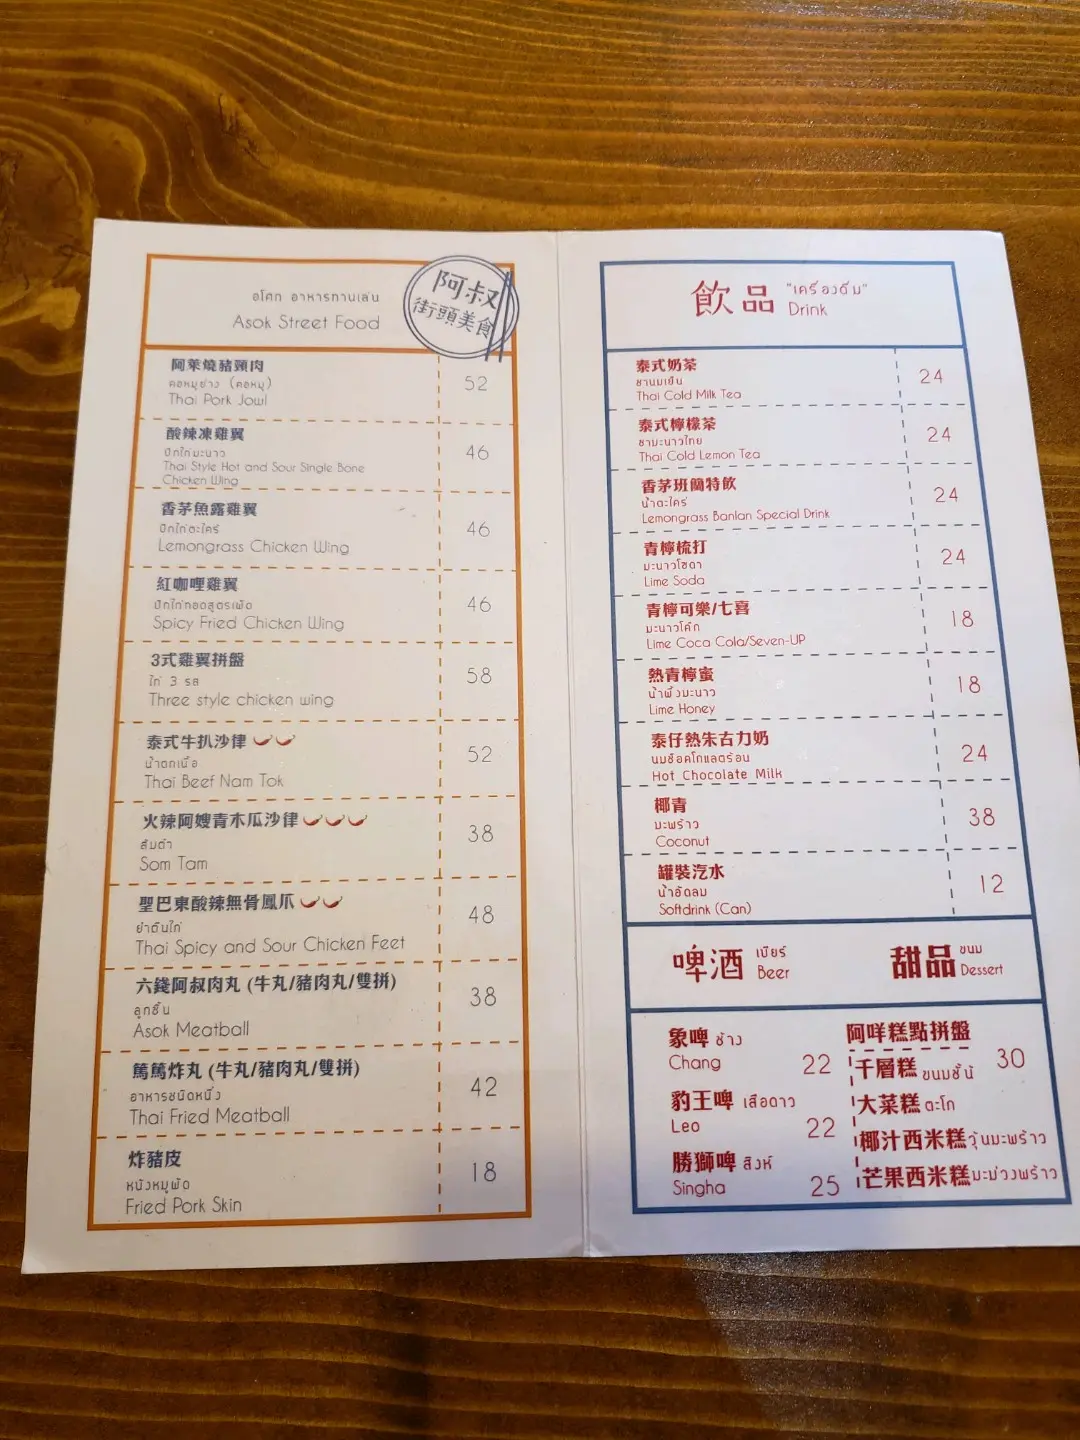 อโศก อาหารทานเล่น
Asok Street Food
阿叔
街頭美食
阿萊燒豬頸肉
คอหมูย่าง (คอหมู)
Thai Pork Jowl
52
酸辣凍雞翼
ปีกไก่มะนาว
Thai Style Hot and Sour Single Bone
Chicken Wing
46
香茅魚露雞翼
ปีกไก่ตะไคร้
Lemongrass Chicken Wing
46
紅咖哩雞翼
ปีกไก่ทอดสูตรเผ็ด
Spicy Fried Chicken Wing
46
3式雞翼拼盤
ไก่ 3 รส
Three style chicken wing
58
泰式牛扒沙律
น้ำตกเนื้อ
Thai Beef Nam Tok
52
火辣阿嫂青木瓜沙律
ส้มตำ
Som Tam
38
聖巴東酸辣無骨鳳爪
ยำตีนไก่
Thai Spicy and Sour Chicken Feet
48
六錢阿叔肉丸 (牛丸/豬肉丸/雙拼)
ลูกชิ้น
Asok Meatball
38
篤篤炸丸 (牛丸/豬肉丸/雙拼)
อาหารชนิดหนึ่ง
Thai Fried Meatball
42
炸豬皮
หนังหมูผัด
Fried Pork Skin
18
飲品 "เครื่องดื่ม"
Drink
泰式奶茶
ชานมเย็น
Thai Cold Milk Tea
24
泰式檸檬茶
ชามะนาวไทย
Thai Cold Lemon Tea
24
香茅班蘭特飲
น้ำตะไคร้
Lemongrass Banlan Special Drink
24
青檸梳打
มะนาวโซดา
Lime Soda
24
青檸可樂/七喜
มะนาวโค้ก
Lime Coca Cola/Seven-UP
18
熱青檸蜜
น้ำผึ้งมะนาว
Lime Honey
18
泰仔熱朱古力奶
นมช็อคโกแลตร้อน
Hot Chocolate Milk
24
椰青
มะพร้าว
Coconut
38
罐裝汽水
น้ำอัดลม
Softdrink (Can)
12
啤酒 เบียร์
Beer
甜品 ขนม
Dessert
象啤 ช้าง
Chang 22
豹王啤 เสือดาว
Leo 22
勝獅啤 สิงห์
Singha 25
阿咩糕點拼盤
30
千層糕 ขนมชั้น
大菜糕 ตะโก
椰汁西米糕 วุ้นมะพร้าว
芒果西米糕 มะม่วงพร้าว